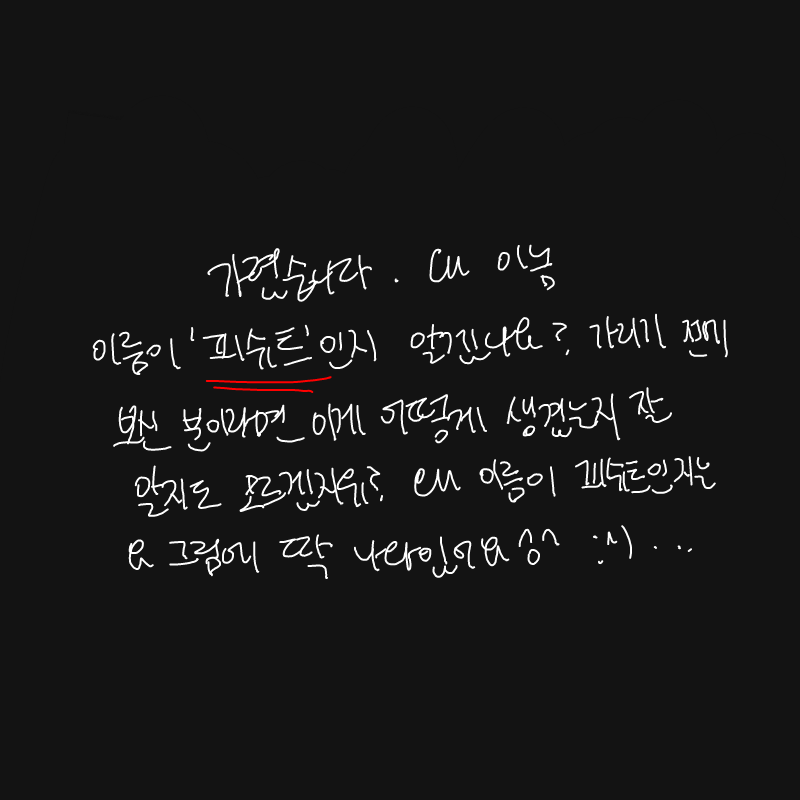 가렸습니다. 왜 이놈
이름이 '피쉬트'인지 알겠나요? 가리기 전에
보신 분이라면 이게 어떻게 생겼는지 잘
알지도 모르겠지유? 왜 이름이 피쉬트인지는
요 그림에 딱 나타있어요 ^^ :^) ...